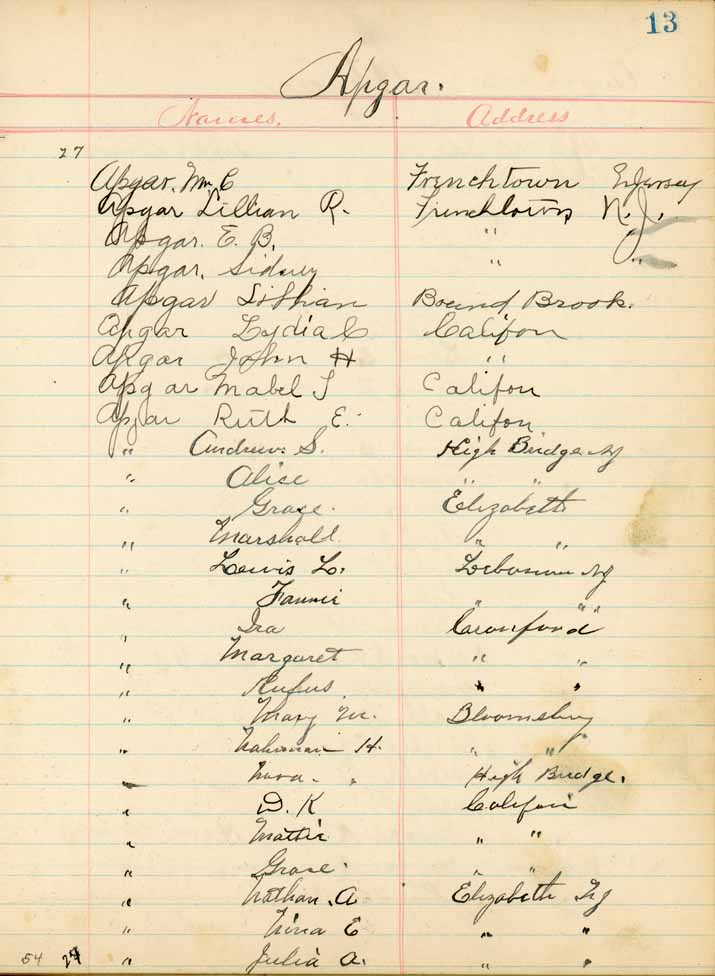 13
Apgar.
Names. Address
27
Apgar, Wm. C Frenchtown N Jersey
Apgar Lillian R. Frenchtown N.J.
Apgar. E. B. "
Apgar. Sidney " "
Apgar Lillian Bound Brook.
Apgar Lydia C Califon
Apgar John H "
Apgar Mabel I Califon
Apgar Ruth E. Califon
" Andrew S. High Bridge NJ
" Alice " "
" Grace. Elizabeth
" Marshall " "
" Lewis L. Lebanon NJ
" Fannie " " "
" Ira Cranford
" Margaret " "
" Rufus " "
" Mary M. Bloomsbury
" H. " "
" " High Bridge.
" D. K Califon
" Mattie " "
" Grace. " "
" Nathan. A Elizabeth NJ
" Nina E " "
54 27 " Julia A. " "